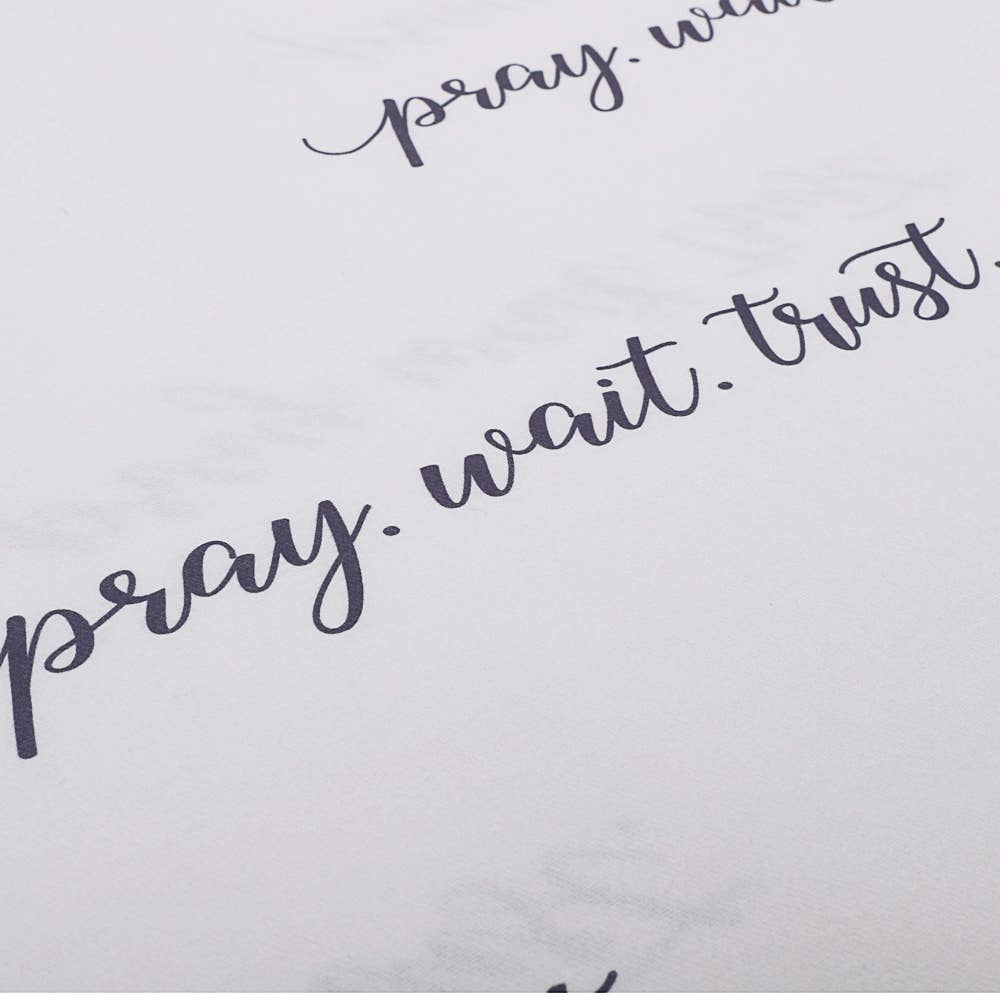 pray. wait.
pray. wait. trust.